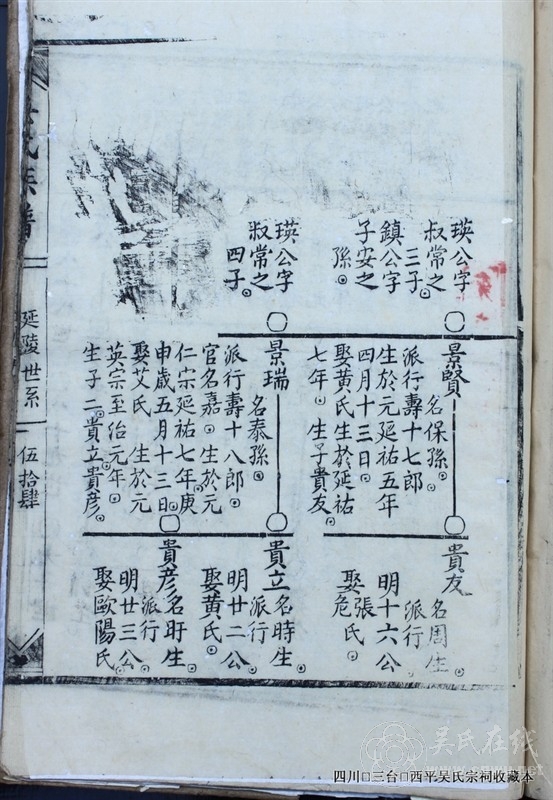 瑛公字
叔常之
三子。
鎮公字
子安之
孫。
景賢
名保孫。
派行壽十七郎
生於元延祐五年
四月十三日。
娶黃氏生於延祐
七年。生子貴友
貴友
名周生
派行
明十六公
娶張氏。
危氏。
瑛公字
叔常之
四子。
景瑞
名泰孫。
派行壽十八郎。
官名嘉。生於元
仁宗延祐七年庚
申歲五月十三日
娶艾氏 生於元
英宗至治元年。
生子二。貴立貴彦。
貴立
名時生。
派行
明廿二公
娶黃氏。
貴彦
名盱生
派行
明廿三公
娶歐陽氏
氏族譜
延陵世系
伍拾肆
吴氏在线
四川□三台□西平吴氏宗祠收藏本